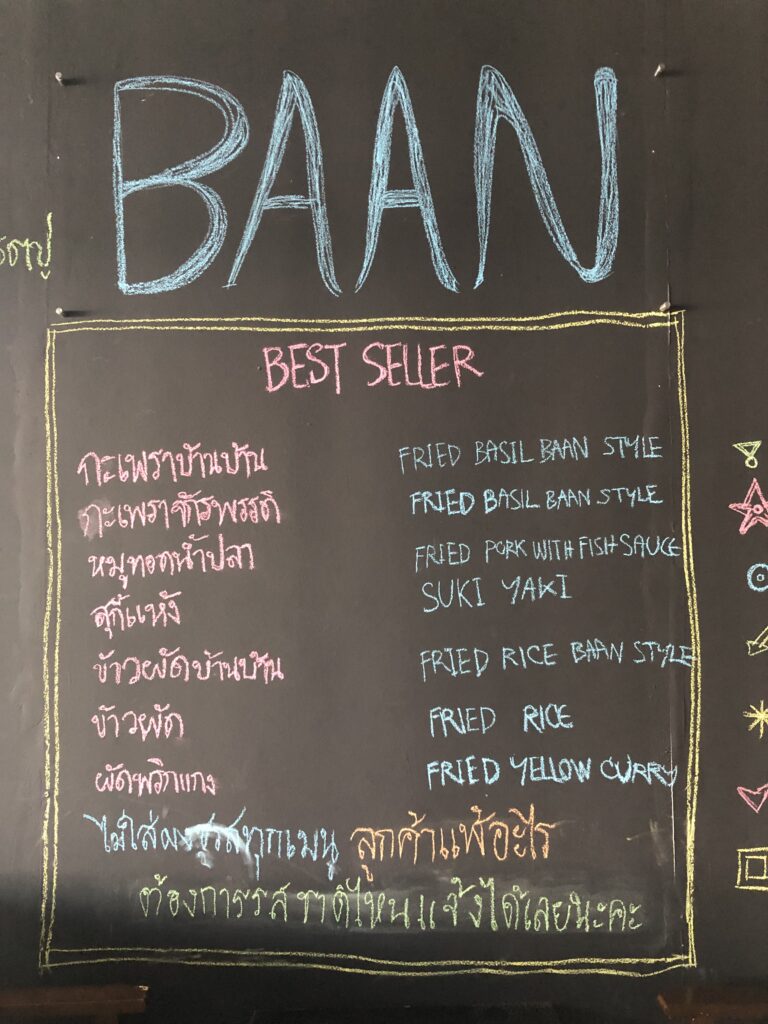 BAAN
BEST SELLER
กะเพราบ้านบ้าน FRIED BASIL BAAN STYLE
กะเพราจักรพรรดิ FRIED BASIL BAAN STYLE
หมูทอดน้ำปลา FRIED PORK WITH FISH SAUCE
สุกี้แห้ง SUKI YAKI
ข้าวผัดบ้านบ้าน FRIED RICE BAAN STYLE
ข้าวผัด FRIED RICE
ผัดพริกแกง FRIED YELLOW CURRY
ไม่ใส่ผงชูรสทุกเมนู ลูกค้าแพ้อะไร
ต้องการรสชาติไหนแจ้งได้เลยนะคะ